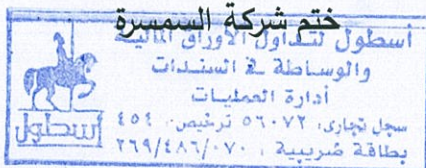 ختم شركة السمسرة
أسطول لتداول الأوراق المالية
والوساطة في السندات
أدارة العمليات
سجل تجارى، ٥٦٠٧٢ ترخيص، ٤٥٤
بطاقة ضريبية ، ٢٦٩/٤٨٦/٠٧٠
أسطول